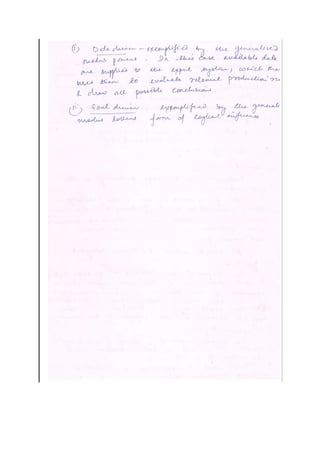 (i) Data driven - exemplified by the generalised
modus ponens. In this case available data
are supplied to the expert system, which then
uses them to evaluate relevant production
& draw all possible conclusions
(ii) Goal driven - exemplified by the general
modus tollens form of logical inference